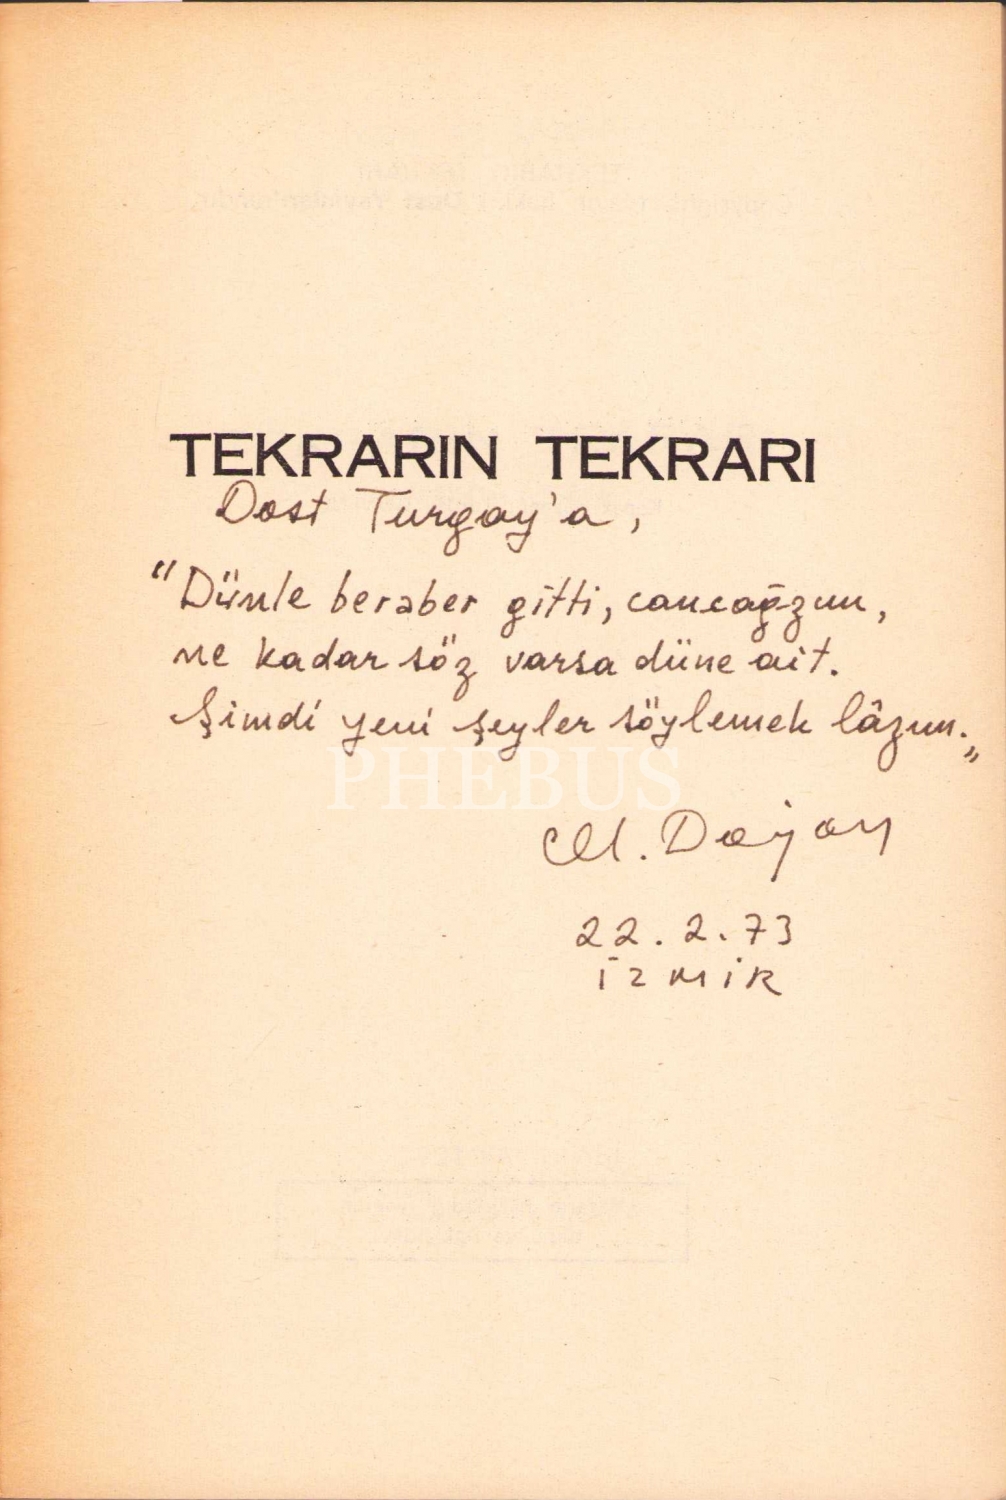 TEKRARIN TEKRARI
Dost Turgay'a,
"Dünle beraber gitti, cancağzım,
ne kadar söz varsa düne ait.
Şimdi yeni şeyler söylemek lâzım.„
PHEBUS
M. Doğan
22.2.73
İzmir